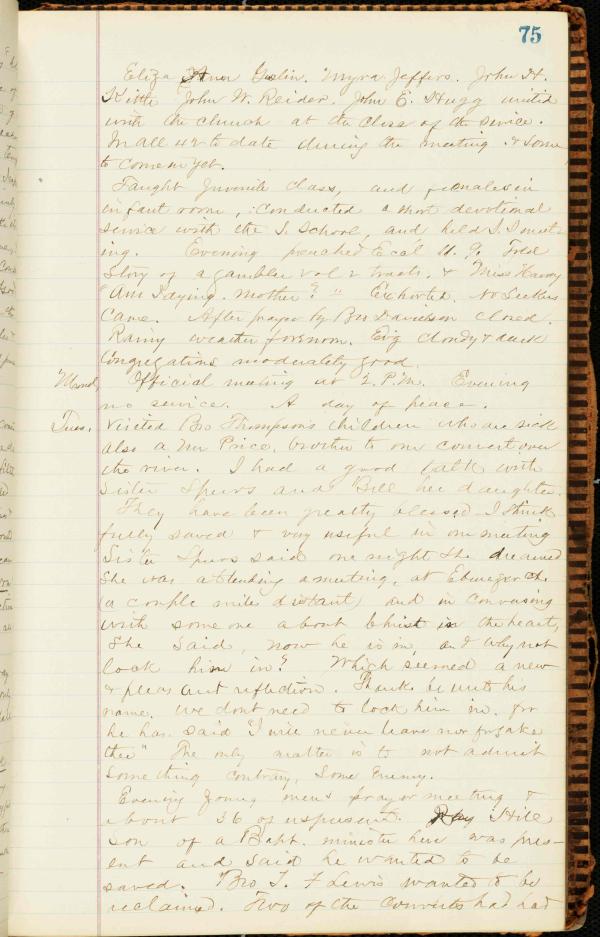 75
Eliza Ann Goslin. Myra Jeffers. John H.
Kittle John W. Reider. John E. Hugg united
with the church at the close of the service.
In all 42 to date during the meeting. & some
to come in yet.
Taught Juvenile class, and females in
infant room, conducted a short devotional
service with the S. School, and held S. S. meet
ing. Evening preached Eccl 11. 9. Told
Story of a gambler vol 2 tracts. & Miss Harvy
"Am I dying. Mother?" Exhorted. No Seekers
Came. After prayer by Bro Davidson closed.
Rainy weather forenoon. Evg cloudy & dark
Congregations moderately good.
Mond, Official meeting at 2. P.M. Evening
no service. A day of peace.
Tues. Visited Bro Thompson's children who are sick
also a Mr Price, brother to our convert over
the river. I had a good talk with
Sister Spurs and Bell her daughter.
They have been greatly blessed I think
fully saved & very useful in our meeting
Sister Spurs said one night she dreamed
She was attending a meeting, at Ebenezer Ch.
(a couple miles distant) and in conversing
with some one about Christ in the heart,
She said, now he is in, and why not
lock him in? Which seemed a new
& pleasant reflection. Thanks be unto his
name. we dont need to lock him in. for
he has said "I will never leave nor forsake
thee" The only matter is to not admit
something contrary, Some Enemy.
Evening young mens prayer meeting &
about 36 of us present. Hill
Son of a Bapt. minister here was pres-
ent and said he wanted to be
saved. Bro T. F Lewis wanted to be
reclaimed. Two of the converts had had